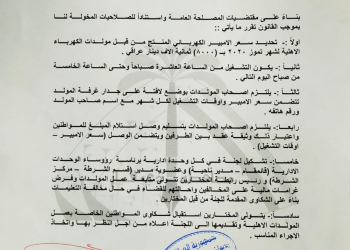 بناءً على مقتضيات المصلحة العامة واستناداً للصلاحيات المخولة لنا
بموجب القانون تقرر ما يأتي ::
اولاً :- تحديد سعر الامبير الكهربائي المنتج من قبل مولدات الكهرباء
الاهلية لشهر تموز ٢٠٢٠ بـ (٨٠٠٠) ثمانية الاف دينار عراقي .
ثانياً :- يكون التشغيل من الساعة العاشرة صباحاً وحتى الساعة الخامسة
من صباح اليوم التالي .
ثالثاً :- يلتزم اصحاب المولدات بوضع لافتة على جدار غرفة المولد
تتضمن سعر الامبير واوقات التشغيل لكل شهر مع اسم صاحب المولد
ورقم هاتفه .
رابعاً :- يلتزم اصحاب المولدات بتنظيم وصل استلام المبلغ للمواطنين
واعتبار ذلك وثيقة عقد بين الطرفين ويتضمن الوصل (سعر الامبير -
اوقات التشغيل) .
خامساً :- تشكيل لجنة في كل وحدة ادارية برئاسة رؤوساء الوحدات
الادارية (قائمقام - مدير ناحية) وعضوية مدير (القسم الشرطة - مركز
الشرطة) ورئيس رابطة المختارين تتولى متابعة عمل المولدات وفرض
غرامات مالية على المخالفين واحالتهم للقضاء في حال مخالفة التعليمات
بناءً على الشكاوى المقدمة للجنة من قبل المختارين .
سادساً :- يتولى المختارين استقبال شكاوى المواطنين الخاصة بعمل
المولدات الاهلية وتقديمها الى اللجنة اعلاه من اجل النظر بها واتخاذ
الاجراء المناسب .